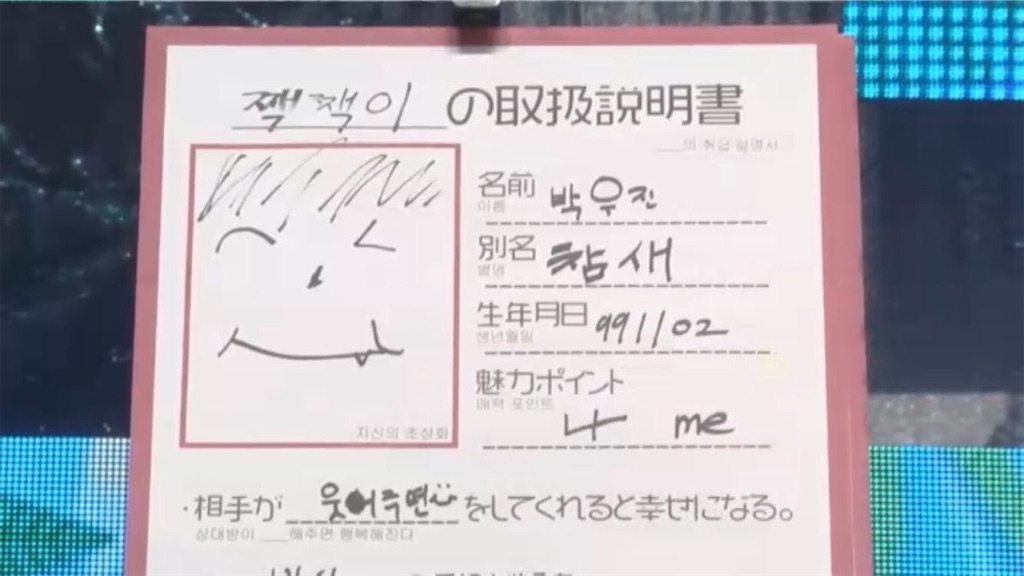 짹짹이の取扱説明書
___의 취급 설명서
자신의 초상화
名前 박우진
이름
別名 참새
별명
生年月日 991102
생년월일
魅力ポイント
매력 포인트
나 me
·相手が 웃어주면 をしてくれると幸せになる。
상대방이 ___해주면 행복해진다